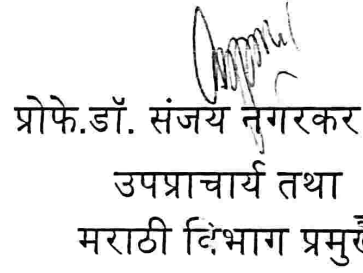 प्रोफे.डॉ. संजय नगरकर
उपप्राचार्य तथा
मराठी विभाग प्रमुख